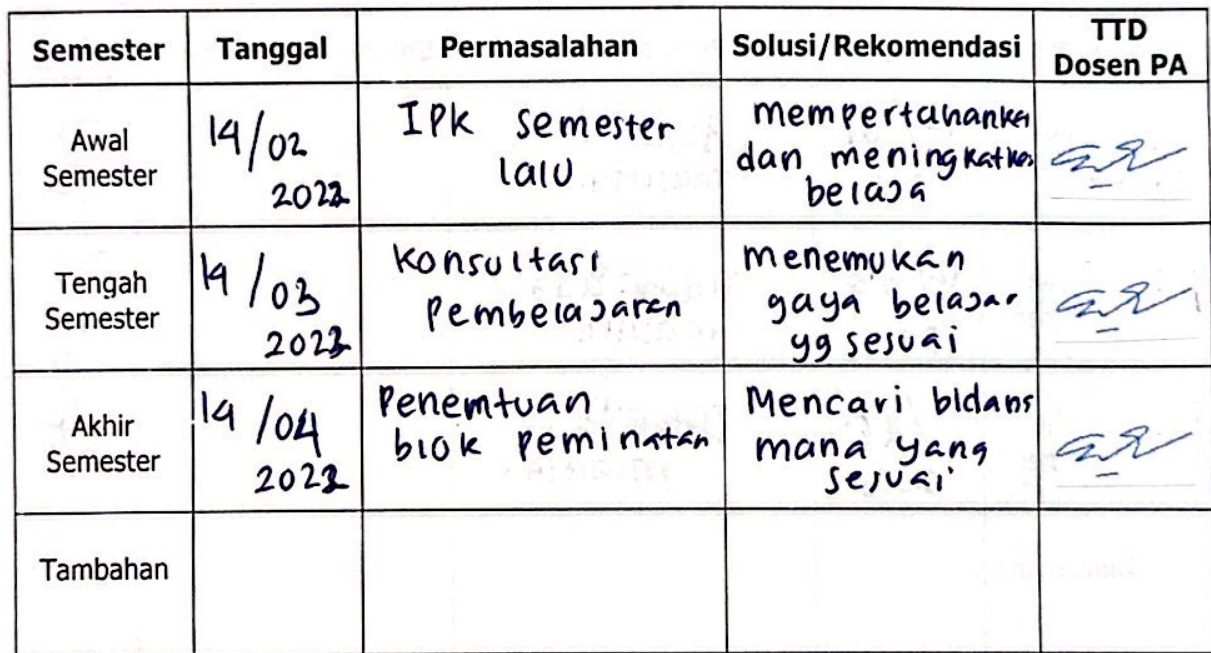 Semester Tanggal Permasalahan Solusi/Rekomendasi TTD
Dosen PA
Awal
Semester
14/02
IPK semester
lalu
mempertahankan
dan meningkatkan
belaja
Tengah
Semester
14/03
Konsultasi
Pembelajaran
menemukan
gaya belajar
yg sesuai
Akhir
Semester
14/04
Penemtuan
blok peminatan
Mencari bidang
mana yang
sesuai
Tambahan